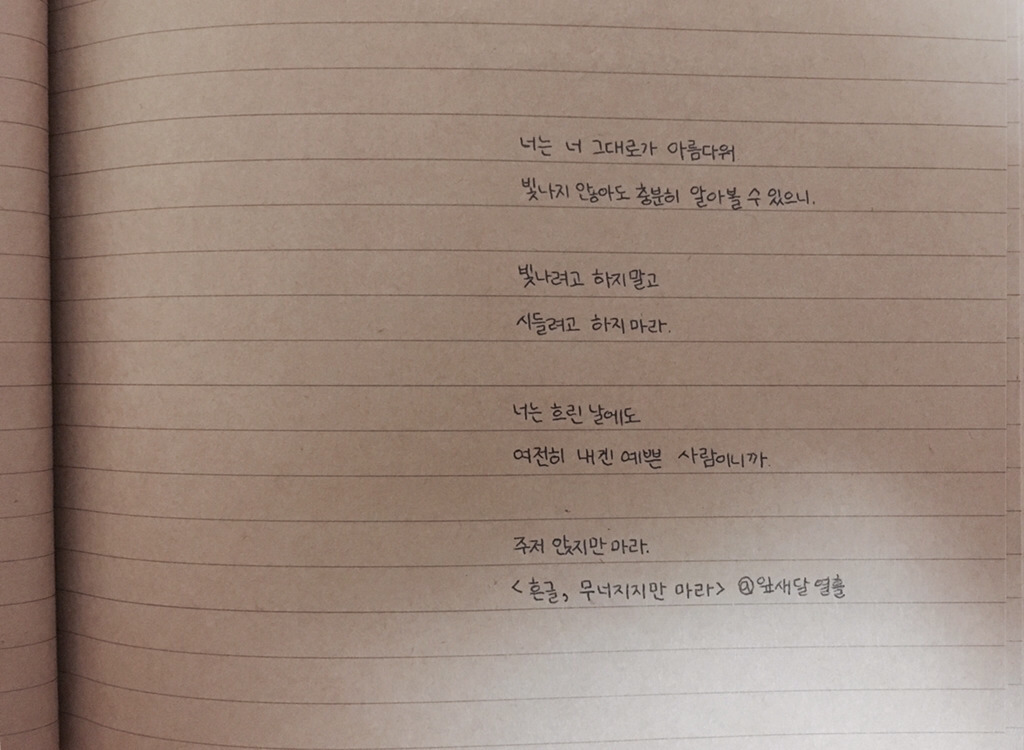 너는 너 그대로가 아름다워
빛나지 않아도 충분히 알아볼 수 있으니.
빛나려고 하지말고
시들려고 하지마라.
너는 흐린 날에도
여전히 내겐 예쁜 사람이니까.
주저 앉지만 마라.
<흔글, 무너지지만 마라> @앞새달 열흘